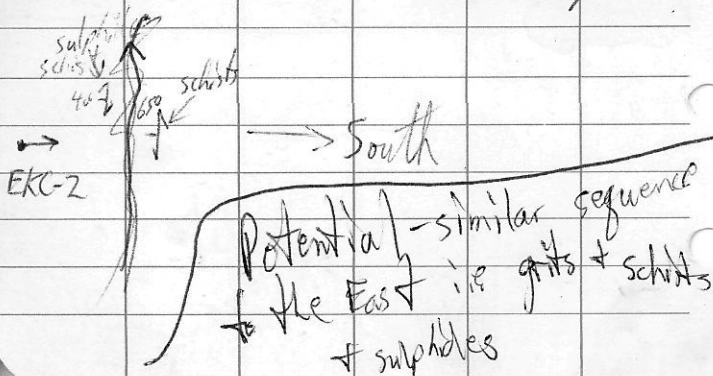 sulphides
schist
40
650
schists
EKC-2
South
Potential - similar sequence
to the East i.e grits + schists
+ sulphides